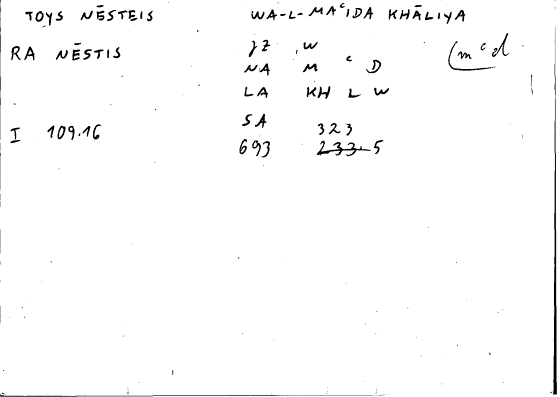 TOYS NĒSTEIS WA-L-MAᶜIDA KHĀLIYA
RA NĒSTIS JZ W (mᶜd
NA M ᶜ D
LA KH L W
I 109.16 SA 323
693 233.5